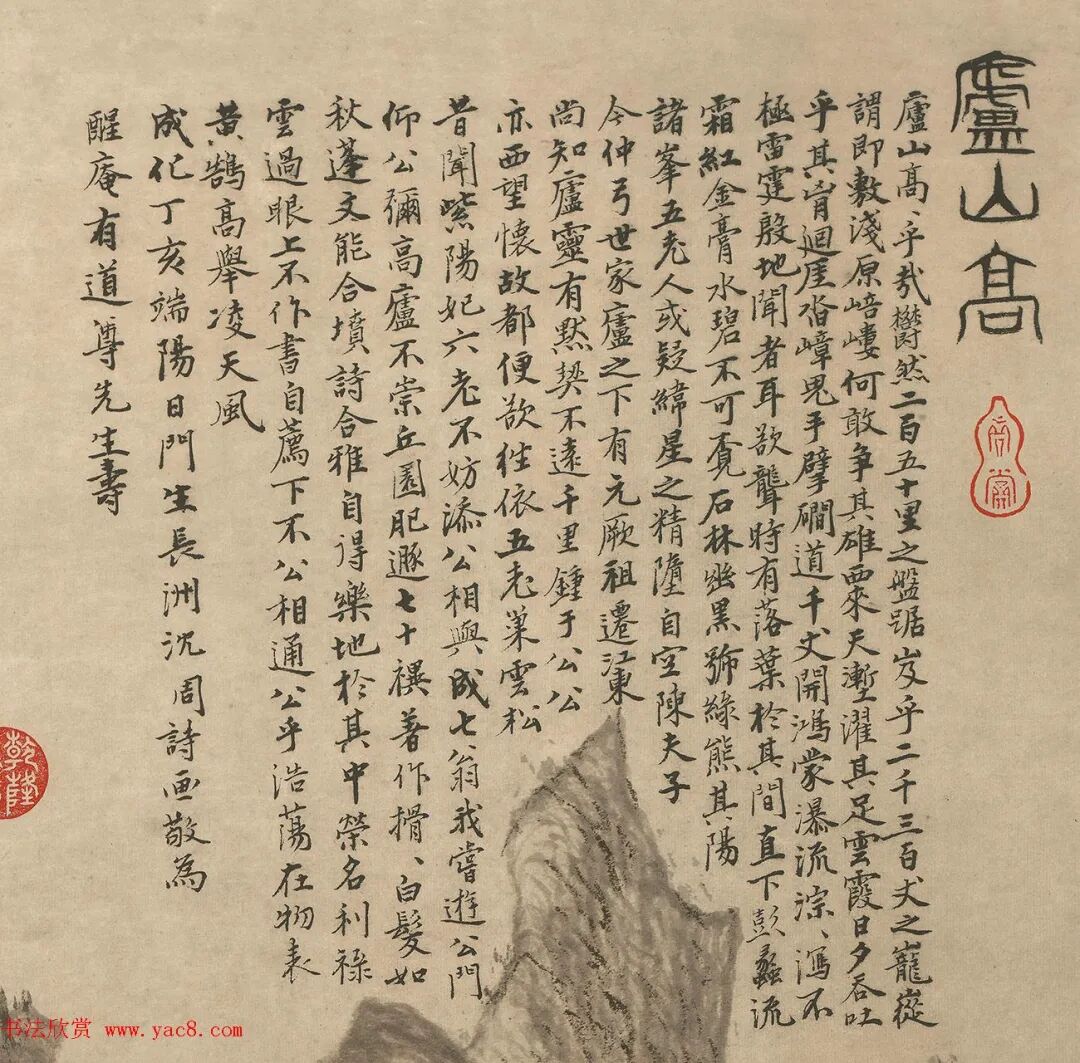 廬山高
廬山高、乎㢤欎然二百五十里之盤踞岌乎二千三百丈之巃嵷
謂即敷淺原嵓嶁何敢争其雄西來天塹濯其足雲霞日夕吞吐
乎其胷迴厓沓嶂鬼手擘磵道千丈開鴻蒙瀑流淙、瀉不
極雷霆殷地聞者耳欲聾時有落葉於其間直下彭蠡流
霜紅金膏水碧不可覔石林幽黑號緑熊其陽
諸峯五老人或疑緯星之精墮自空陳夫子
今仲弓世家廬之下有元厥祖遷江東
尚知廬靈有默契不遠千里鍾于公公
亦西望懷故都便欲往依五老巢雲松
昔聞紫陽妃六老不妨添公相與成七翁我嘗遊公門
仰公彌高廬不崇丘園肥遯七十禩著作揹、白髪如
秋蓬文能合墳詩合雅自得樂地於其中榮名利禄
雲過眼上不作書自薦下不公相通公乎浩蕩在物表
黄鵠高舉凌天風
成化丁亥端陽日門生長洲沈周詩画敬為
醒庵有道尊先生壽
乾隆
书法欣赏 www.yac8.com